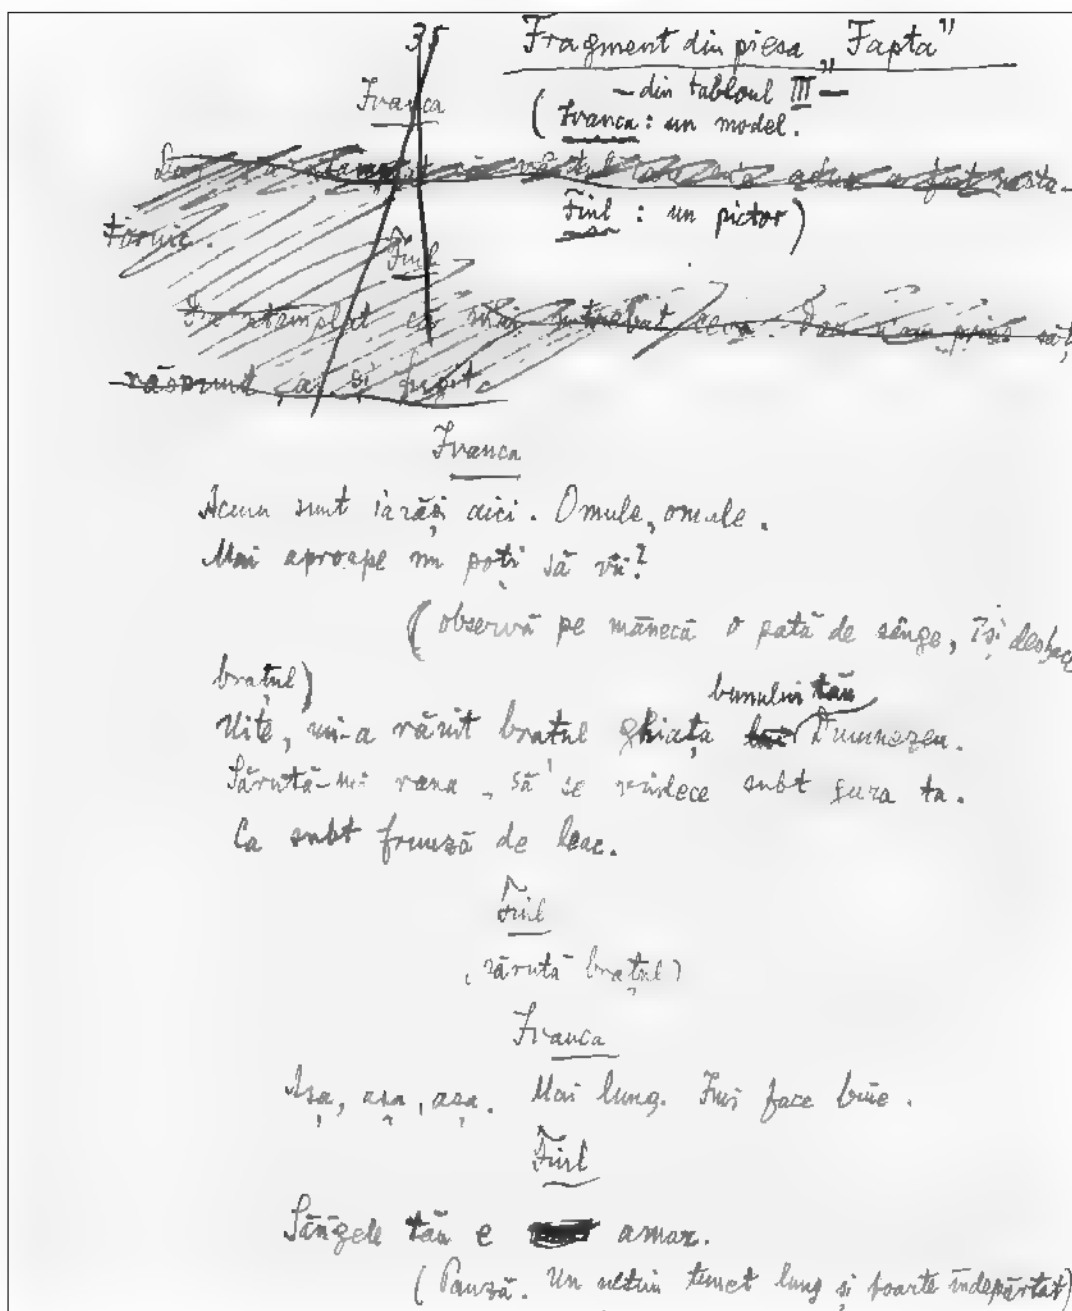 35
Fragment din piesa „Fapta”
— din tabloul III —
Ivanca
( Ivanca : un model.
tornic.
Fiul : un pictor )
Fiul
că m'ai întrebat ceva. Dar n'am prins să-ți
răspund, că ai și fugit.
Ivanca
Acum sunt iarăși aici. Omule, omule.
Mai aproape nu poți să vii?
( observă pe mânecă o pată de sânge, își desface
brațul )
bunului tău
Uite, mi-a rănit brațul ghiața lui Dumnezeu.
Sărută-mi rana, să se vindece subt gura ta.
Ca subt frunză de leac.
Fiul
( sărută brațul )
Ivanca
Așa, așa, așa. Mai lung. Îmi face bine.
Fiul
Sângele tău e amar.
( Pauză. Un tunet lung și foarte îndepărtat )